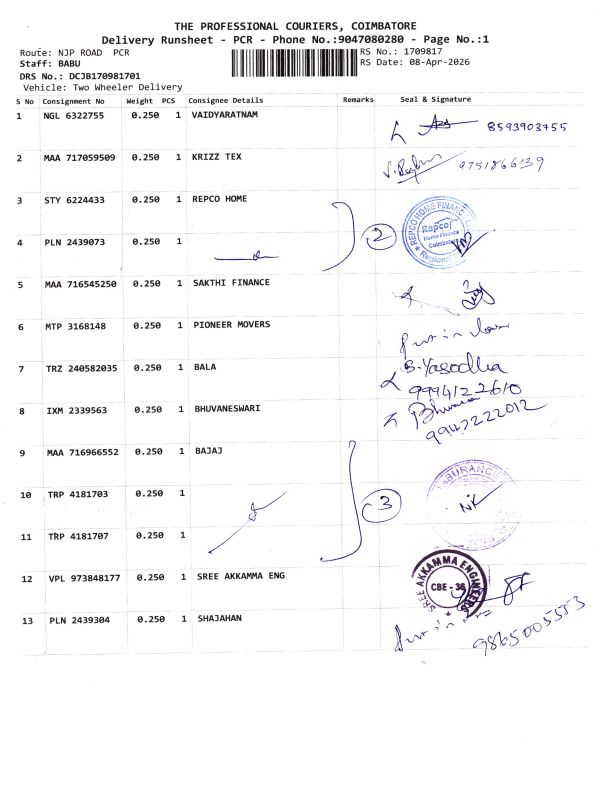 THE PROFESSIONAL COURIERS, COIMBATORE
Delivery Runsheet - PCR - Phone No.:9047080280 - Page No.:1
Route: NJP ROAD PCR
RS No.: 1709817
Staff: BABU
RS Date: 08-Apr-2026
DRS No.: DCJB170981701
Vehicle: Two Wheeler Delivery
S No Consignment No Weight PCS Consignee Details Remarks Seal & Signature
1 NGL 6322755 0.250 1 VAIDYARATNAM 8593903755
2 MAA 717059509 0.250 1 KRIZZ TEX 9751866139
3 STY 6224433 0.250 1 REPCO HOME
REPCO HOME FINANCE
Repco
Home Finance
Coimbatore
2
4 PLN 2439073 0.250 1
5 MAA 716545250 0.250 1 SAKTHI FINANCE
6 MTP 3168148 0.250 1 PIONEER MOVERS Put in
7 TRZ 240582035 0.250 1 BALA B.Yasodha
9994122610
8 IXM 2339563 0.250 1 BHUVANESWARI
9942222012
9 MAA 716966552 0.250 1 BAJAJ
10 TRP 4181703 0.250 1
3
11 TRP 4181707 0.250 1
12 VPL 973848177 0.250 1 SREE AKKAMMA ENG
SREE AKKAMMA ENGINEERS
CBE - 36
13 PLN 2439304 0.250 1 SHAJAHAN Put in
9865005553